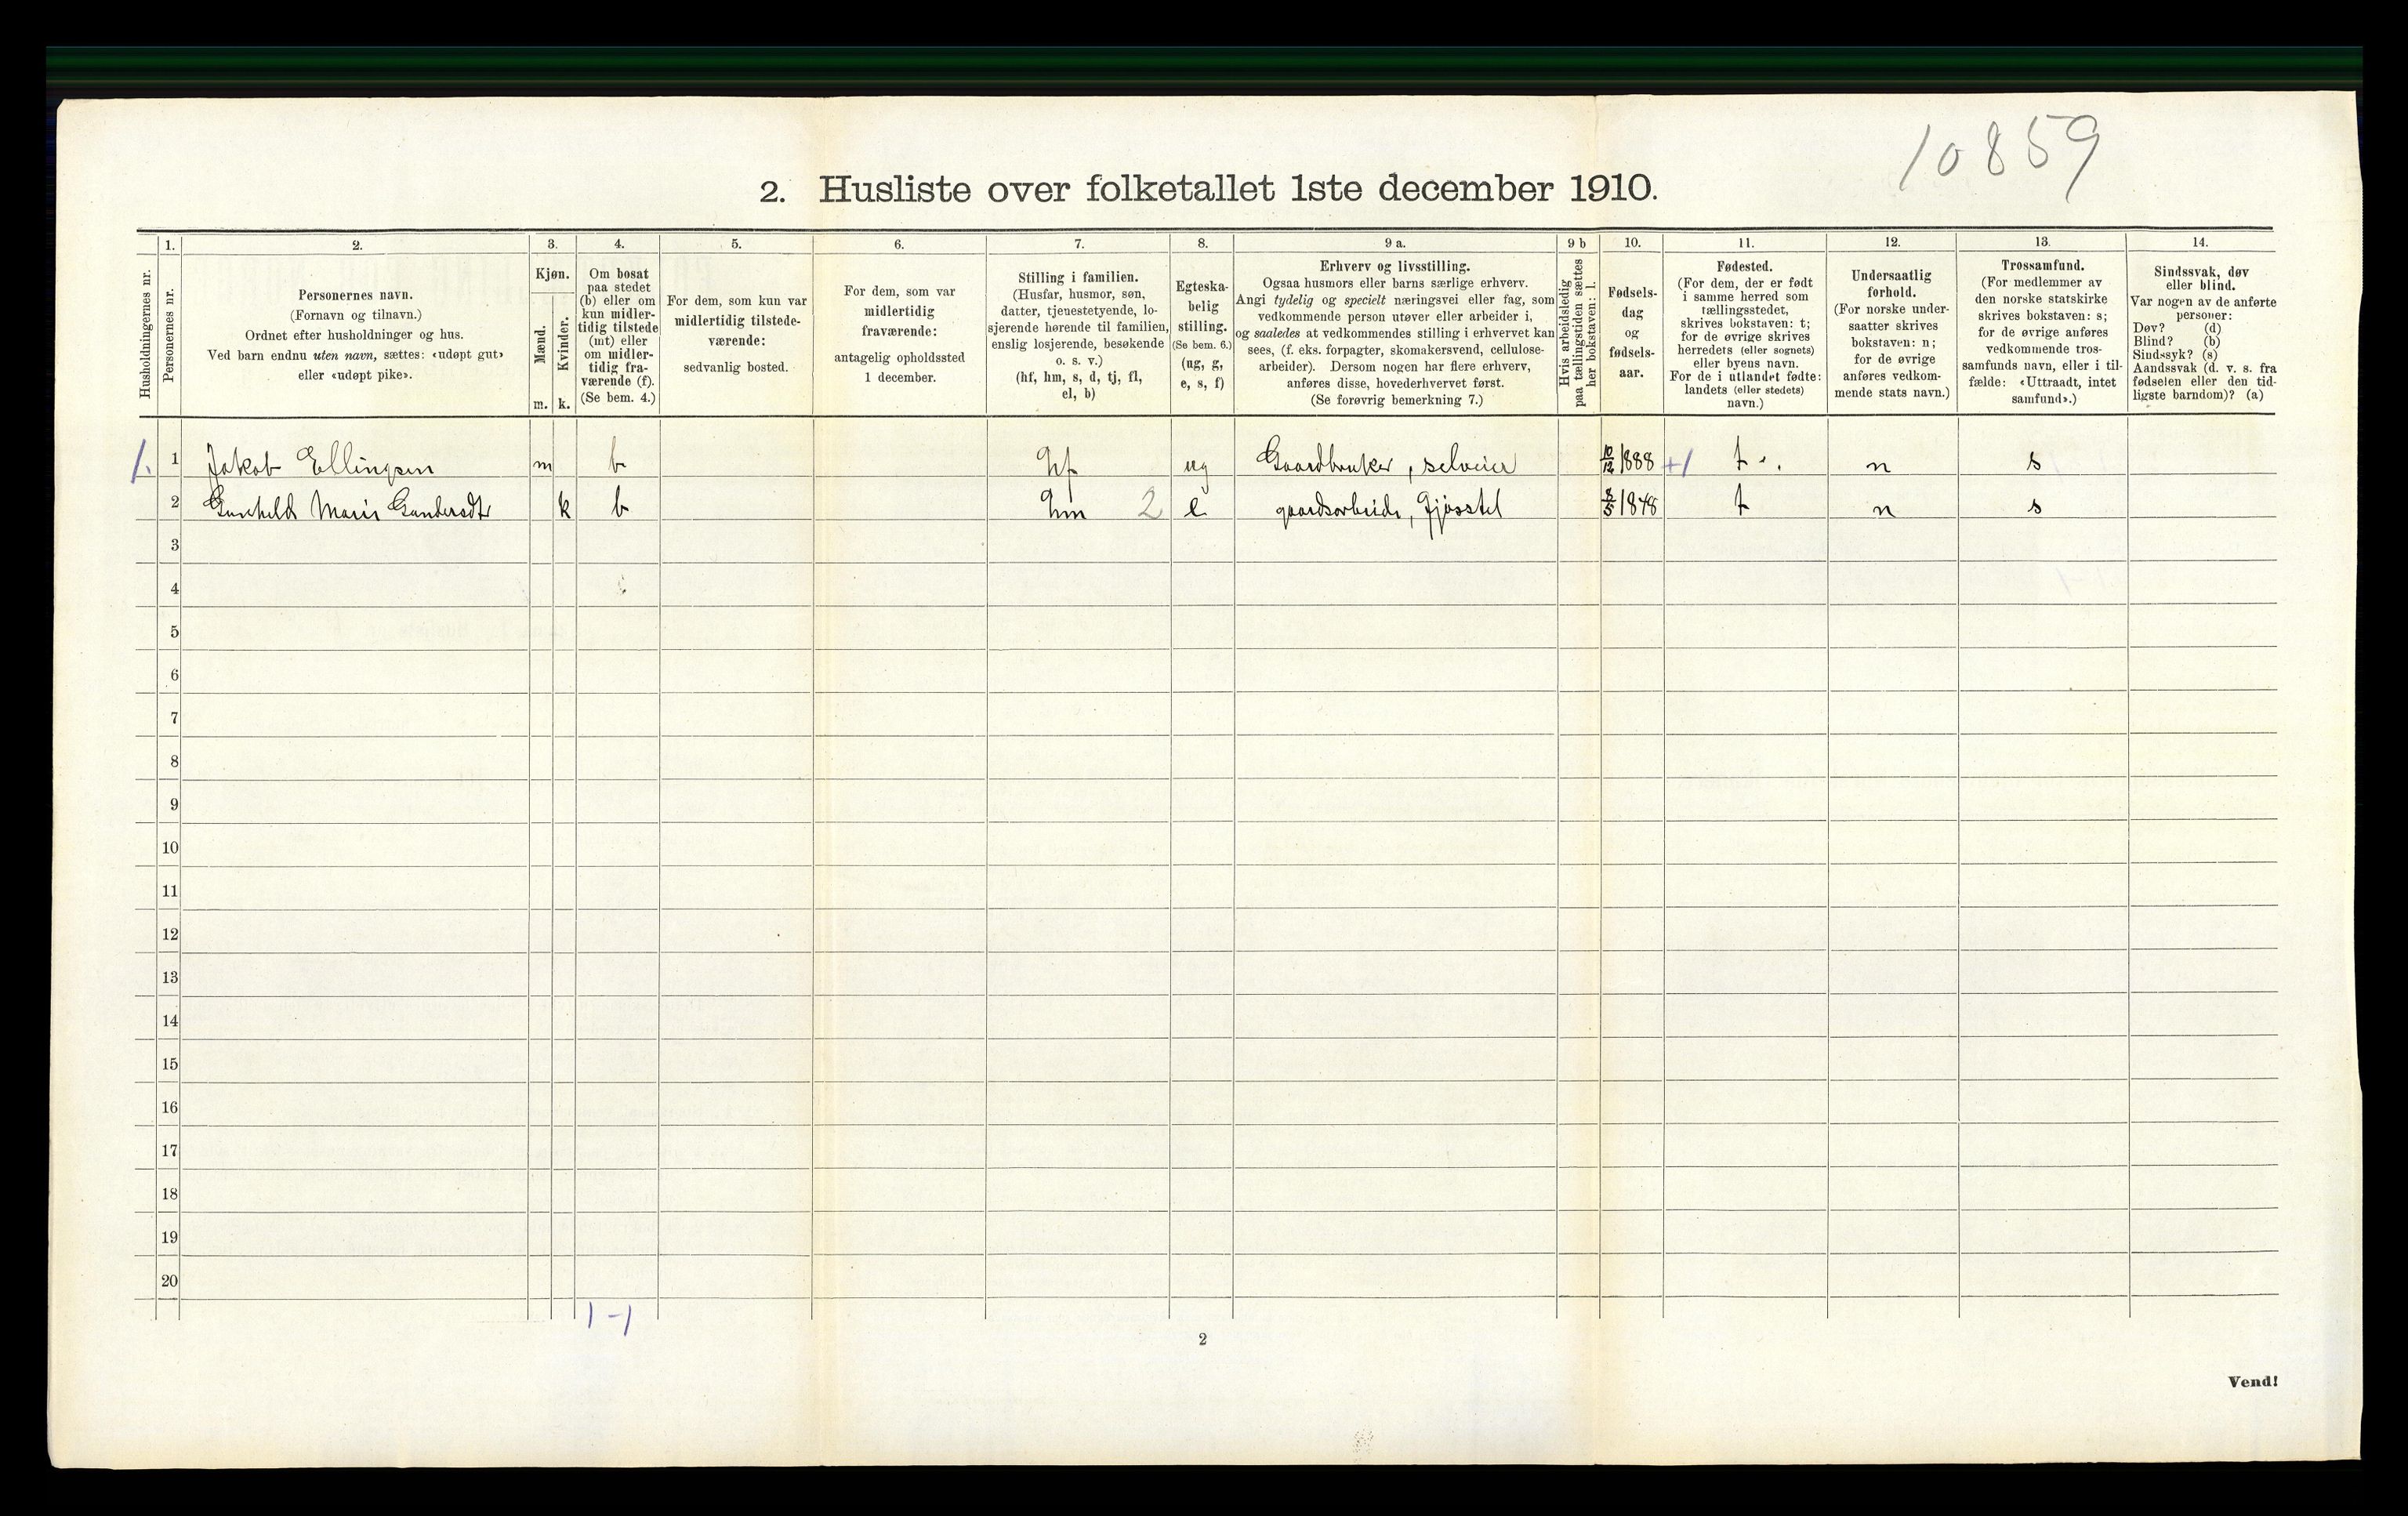 10859
2. Husliste over folketallet 1ste december 1910.
Husholdningernes nr.
1.
Personernes nr.
2.
Personernes navn.
(Fornavn og tilnavn.)
Ordnet efter husholdninger og hus.
Ved barn endnu uten navn, sættes: «udøpt gut»
eller «udøpt pike».
3.
Kjøn.
Mænd.
m.
Kvinder.
k.
4.
Om bosat
paa stedet
(b) eller om
kun midler-
tidig tilstede
(mt) eller
om midler-
tidig fra-
værende (f).
(Se bem. 4.)
5.
For dem, som kun var
midlertidig tilstede-
værende:
sedvanlig bosted.
6.
For dem, som var
midlertidig
fraværende:
antagelig opholdssted
1 december.
7.
Stilling i familien.
(Husfar, husmor, søn,
datter, tjenestetyende, lo-
sjerende hørende til familien,
enslig losjerende, besøkende
o. s. v.)
(hf, hm, s, d, tj, fl,
el, b)
8.
Egteska-
belig
stilling.
(Se bem. 6.)
(ug, g,
e, s, f)
9 a.
Erhverv og livsstilling.
Ogsaa husmors eller barns særlige erhverv.
Angi tydelig og specielt næringsvei eller fag, som
vedkommende person utøver eller arbeider i,
og saaledes at vedkommendes stilling i erhvervet kan
sees, (f. eks. forpagter, skomakersvend, cellulose-
arbeider). Dersom nogen har flere erhverv,
anføres disse, hovederhvervet først.
(Se forøvrig bemerkning 7.)
9 b
Hvis arbeidsledig
paa tællingstiden sættes
her bokstaven: l.
10.
Fødsels-
dag
og
fødsels-
aar.
11.
Fødested.
(For dem, der er født
i samme herred som
tællingsstedet,
skrives bokstaven: t;
for de øvrige skrives
herredets (eller sognets)
eller byens navn.
For de i utlandet fødte:
landets (eller stedets)
navn.)
12.
Undersaatlig
forhold.
(For norske under-
saatter skrives
bokstaven: n;
for de øvrige
anføres vedkom-
mende stats navn.)
13.
Trossamfund.
(For medlemmer av
den norske statskirke
skrives bokstaven: s;
for de øvrige anføres
vedkommende tros-
samfunds navn, eller i til-
fælde: «Uttraadt, intet
samfund».)
14.
Sindssvak, døv
eller blind.
Var nogen av de anførte
personer:
Døv? (d)
Blind? (b)
Sindssyk? (s)
Aandssvak (d. v. s. fra
fødselen eller den tid-
ligste barndom)? (a)
1. 1 Jakob Ellingsen m b hf ug Gaardbruker, selveier 10/12 1888 +1 t. n s
2 Gunhild Marie Gundersdtr k b hm 2 e gaardsarbeide, fjøsstel 8/5 1848 t n s
3
4
5
6
7
8
9
10
11
12
13
14
15
16
17
18
19
20
1-1
2
Vend!